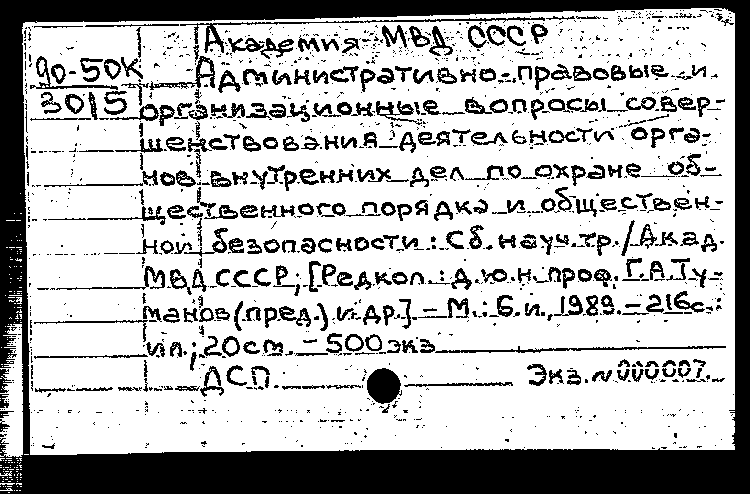 Академия МВД СССР
90-50К
3015
Административно-правовые и
организационные вопросы совер-
шенствования деятельности орга-
нов внутренних дел по охране об-
щественного порядка и обществен-
ной безопасности: Сб. науч. тр./Акад.
МВД СССР; [Редкол.: д.ю.н. проф. Г.А. Ту-
манов (пред.) и др.] - М.: Б.и., 1989. - 216с.:
ил.; 20см. - 500экз
ДСП
Экз. № 000007.